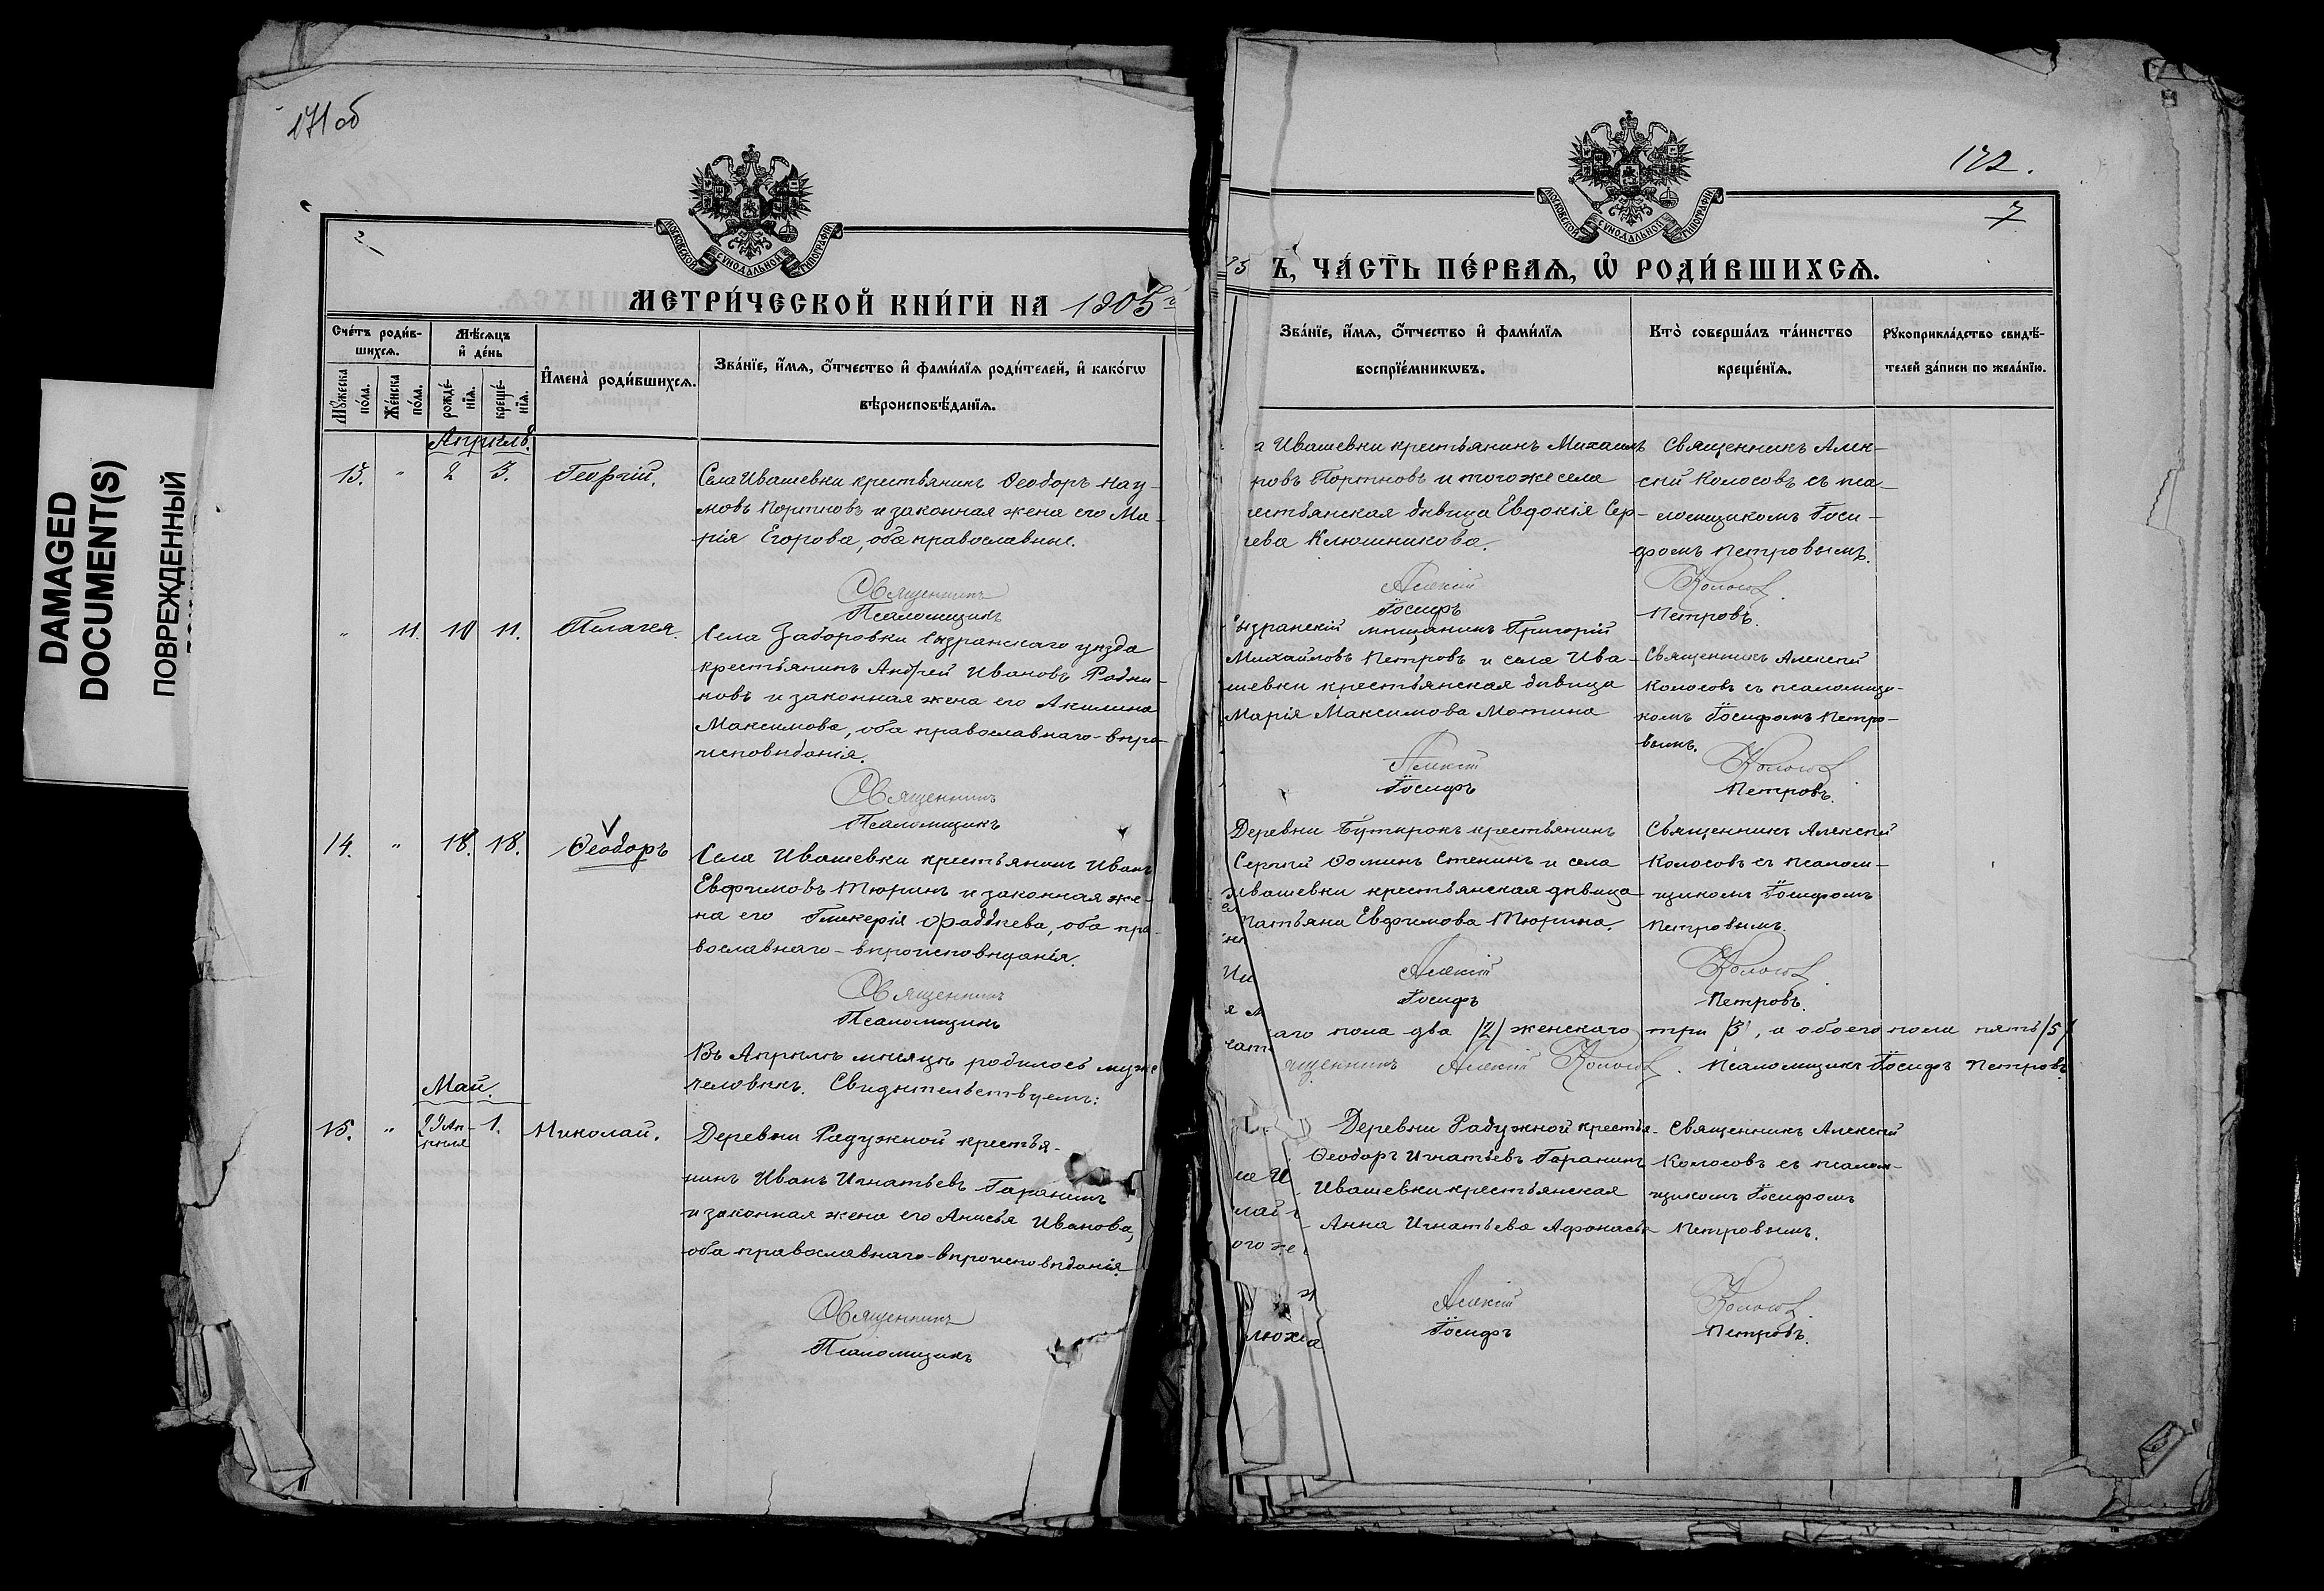 DAMAGED
DOCUMENT(S)
ПОВРЕЖДЕННЫЙ
171 об
МОСКОВСКОЙ СѴНОДАЛЬНОЙ ТИПОГРАФІИ
МЕТРИ́ЧЕСКОЙ КНИ́ГИ НА 1905 г
Сче́тъ роди́в-
шихсѧ.
Мѣ́сѧцъ
и҆ де́нь
Мꙋ́жеска
по́ла.
Же́нска
по́ла.
рожде́-
нїѧ.
креще́-
нїѧ.
И҆мена̀ роди́вшихсѧ.
Зва́нїе, и҆́мѧ, ѻ҆́тчество и҆ фами́лїѧ роди́телей, и҆ како́гѡ
вѣроисповѣ́данїѧ.
Апрѣль.
13. " 2 3. Георгій.
Села Ивашевки крестьянинъ Ѳеодоръ Нау-
мовъ Портновъ и законная жена его Ма-
рія Егорова, оба православные.
Священникъ
Псаломщикъ
" 11. 10 11. Пелагея.
Села Заборовки Сызранскаго уѣзда
крестьянинъ Андрей Ивановъ Родни-
новъ и законная жена его Акилина
Максимова, оба православнаго-вѣро-
исповѣданія.
Священникъ
Псаломщикъ
14. " 18. 18. Ѳеодоръ
Села Ивашевки крестьянинъ Иванъ
Евфимовъ Тюринъ и законная же-
на его Гликерія Фаддѣева, оба пра-
вославнаго-вѣроисповѣданія.
Священникъ
Псаломщикъ
Въ Апрѣлѣ мѣсяцѣ родилось муже
человѣкъ. Свидѣтельствуемъ:
Май.
15. " 29 Ап-
рѣля 1. Николай.
Деревни Радужной крестья-
нинъ Иванъ Игнатьевъ Гаранинъ
и законная жена его Анисья Иванова,
оба православнаго-вѣроисповѣданія.
Священникъ
Псаломщикъ
172.
7
МОСКОВСКОЙ СѴНОДАЛЬНОЙ ТИПОГРАФІИ
Ъ, ЧА́СТЬ ПЕ́РВАѦ, Ѡ҆ РОДИ́ВШИХСѦ.
Зва́нїе, и҆́мѧ, ѻ҆́тчество и҆ фами́лїѧ
воспрїе́мникѡвъ.
Кто̀ соверша́лъ та́инство
креще́нїѧ.
Рꙋкоприкла́дство свидѣ́-
телей за́писи по жела́нїю.
а Ивашевки крестьянинъ Михаилъ
ровъ Портновъ и тогоже села
рестьянская дѣвица Евдокія Сер-
гѣева Клюшникова.
Священникъ Алек-
сѣй Колосовъ съ пса-
ломщикомъ Іоси-
фомъ Петровымъ.
Алексій Колосов.
Іосифъ Петровъ.
Сызранскій мѣщанинъ Григорій
Михайловъ Петровъ и села Ива-
шевки крестьянская дѣвица
Марія Максимова Мотина
Священникъ Алексѣй
Колосовъ съ псаломщи-
комъ Іосифомъ Петро-
вымъ.
Алексій Колосов.
Іосифъ Петровъ.
Деревни Бутырокъ крестьянинъ
Сергѣй Ѳоминъ Стенинъ и села
Ивашевки крестьянская дѣвица
Татьяна Евфимова Тюрина.
Священникъ Алексѣй
Колосовъ съ псалом-
щикомъ Іосифомъ
Петровымъ.
Алексій Колосов.
Іосифъ Петровъ.
аго пола два /2/ женскаго три /3/, а обоего пола пять /5/
ященникъ Алексій Колосов. Псаломщикъ Іосифъ Петровъ.
Деревни Радужной крестья-
Ѳеодоръ Игнатьевъ Гаранинъ
Ивашевки крестьянская
Анна Игнатьева Афонасье
Священникъ Алексѣй
Колосовъ съ псалом-
щикомъ Іосифомъ
Петровымъ.
Алексій Колосов.
Іосифъ Петровъ.